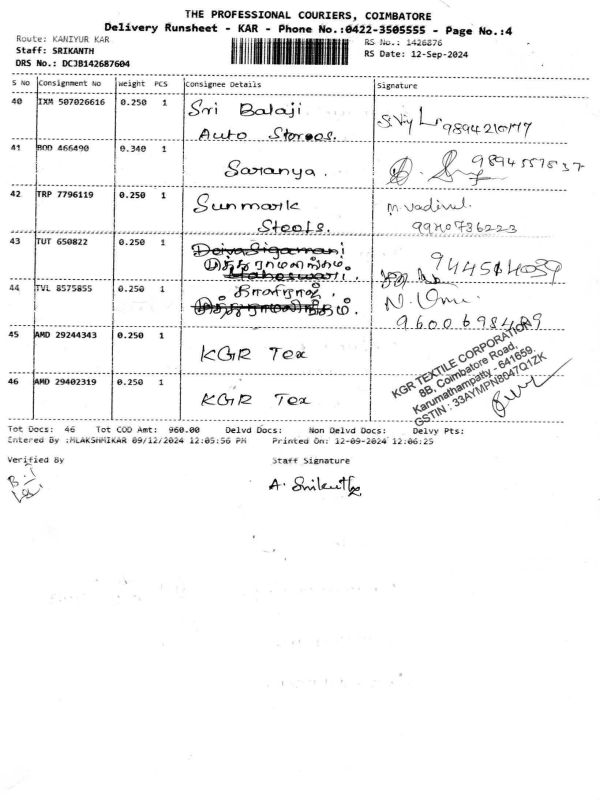 THE PROFESSIONAL COURIERS, COIMBATORE
Delivery Runsheet - KAR - Phone No.:0422-3505555 - Page No.:4
Route: KANIYUR KAR
RS No.: 1426876
Staff: SRIKANTH
RS Date: 12-Sep-2024
DRS No.: DCJB142687604
S No Consignment No Weight PCS Consignee Details Signature
40 IXM 507026616 0.250 1 Sri Balaji
Auto Stores.
41 BOD 466490 0.340 1
Saranya.
42 TRP 7796119 0.250 1 Sunmark
Steels.
M. Vadivel.
9940736223
43 TUT 650822 0.250 1
முத்துராமலிங்கம்
44 TVL 8575855 0.250 1
45 AMD 29244343 0.250 1
KGR Tex
46 AMD 29402319 0.250 1
KGR Tex
KGR TEXTILE CORPORATION
8B, Coimbatore Road,
Karumathampatty - 641659.
GSTIN : 33AYMPN8047Q1ZK
Tot Docs: 46 Tot COD Amt: 960.00 Delvd Docs: Non Delvd Docs: Delvy Pts:
Entered By :MLAKSHMIKAR 09/12/2024 12:05:56 PM Printed On: 12-09-2024 12:06:25
Verified By
Staff Signature